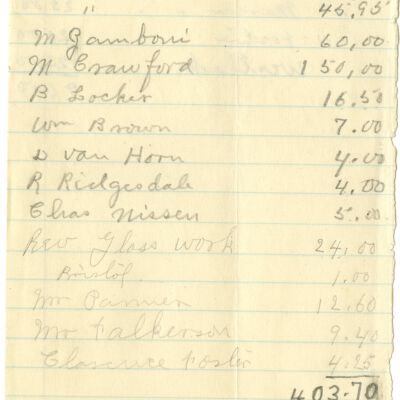 " 45.95
M Gamboni 60,00
M Crawford 150,00
B Locker 16.50
Wm Brown 7.00
D van Horn 4.00
R Ridgesdale 4.00
Chas Nissen 5.00
Rew Glass work 24.00
Bristol 1.00
Mr 12.60
Mr Falkerson 9.40
Clarence Foster 4.25
403.70